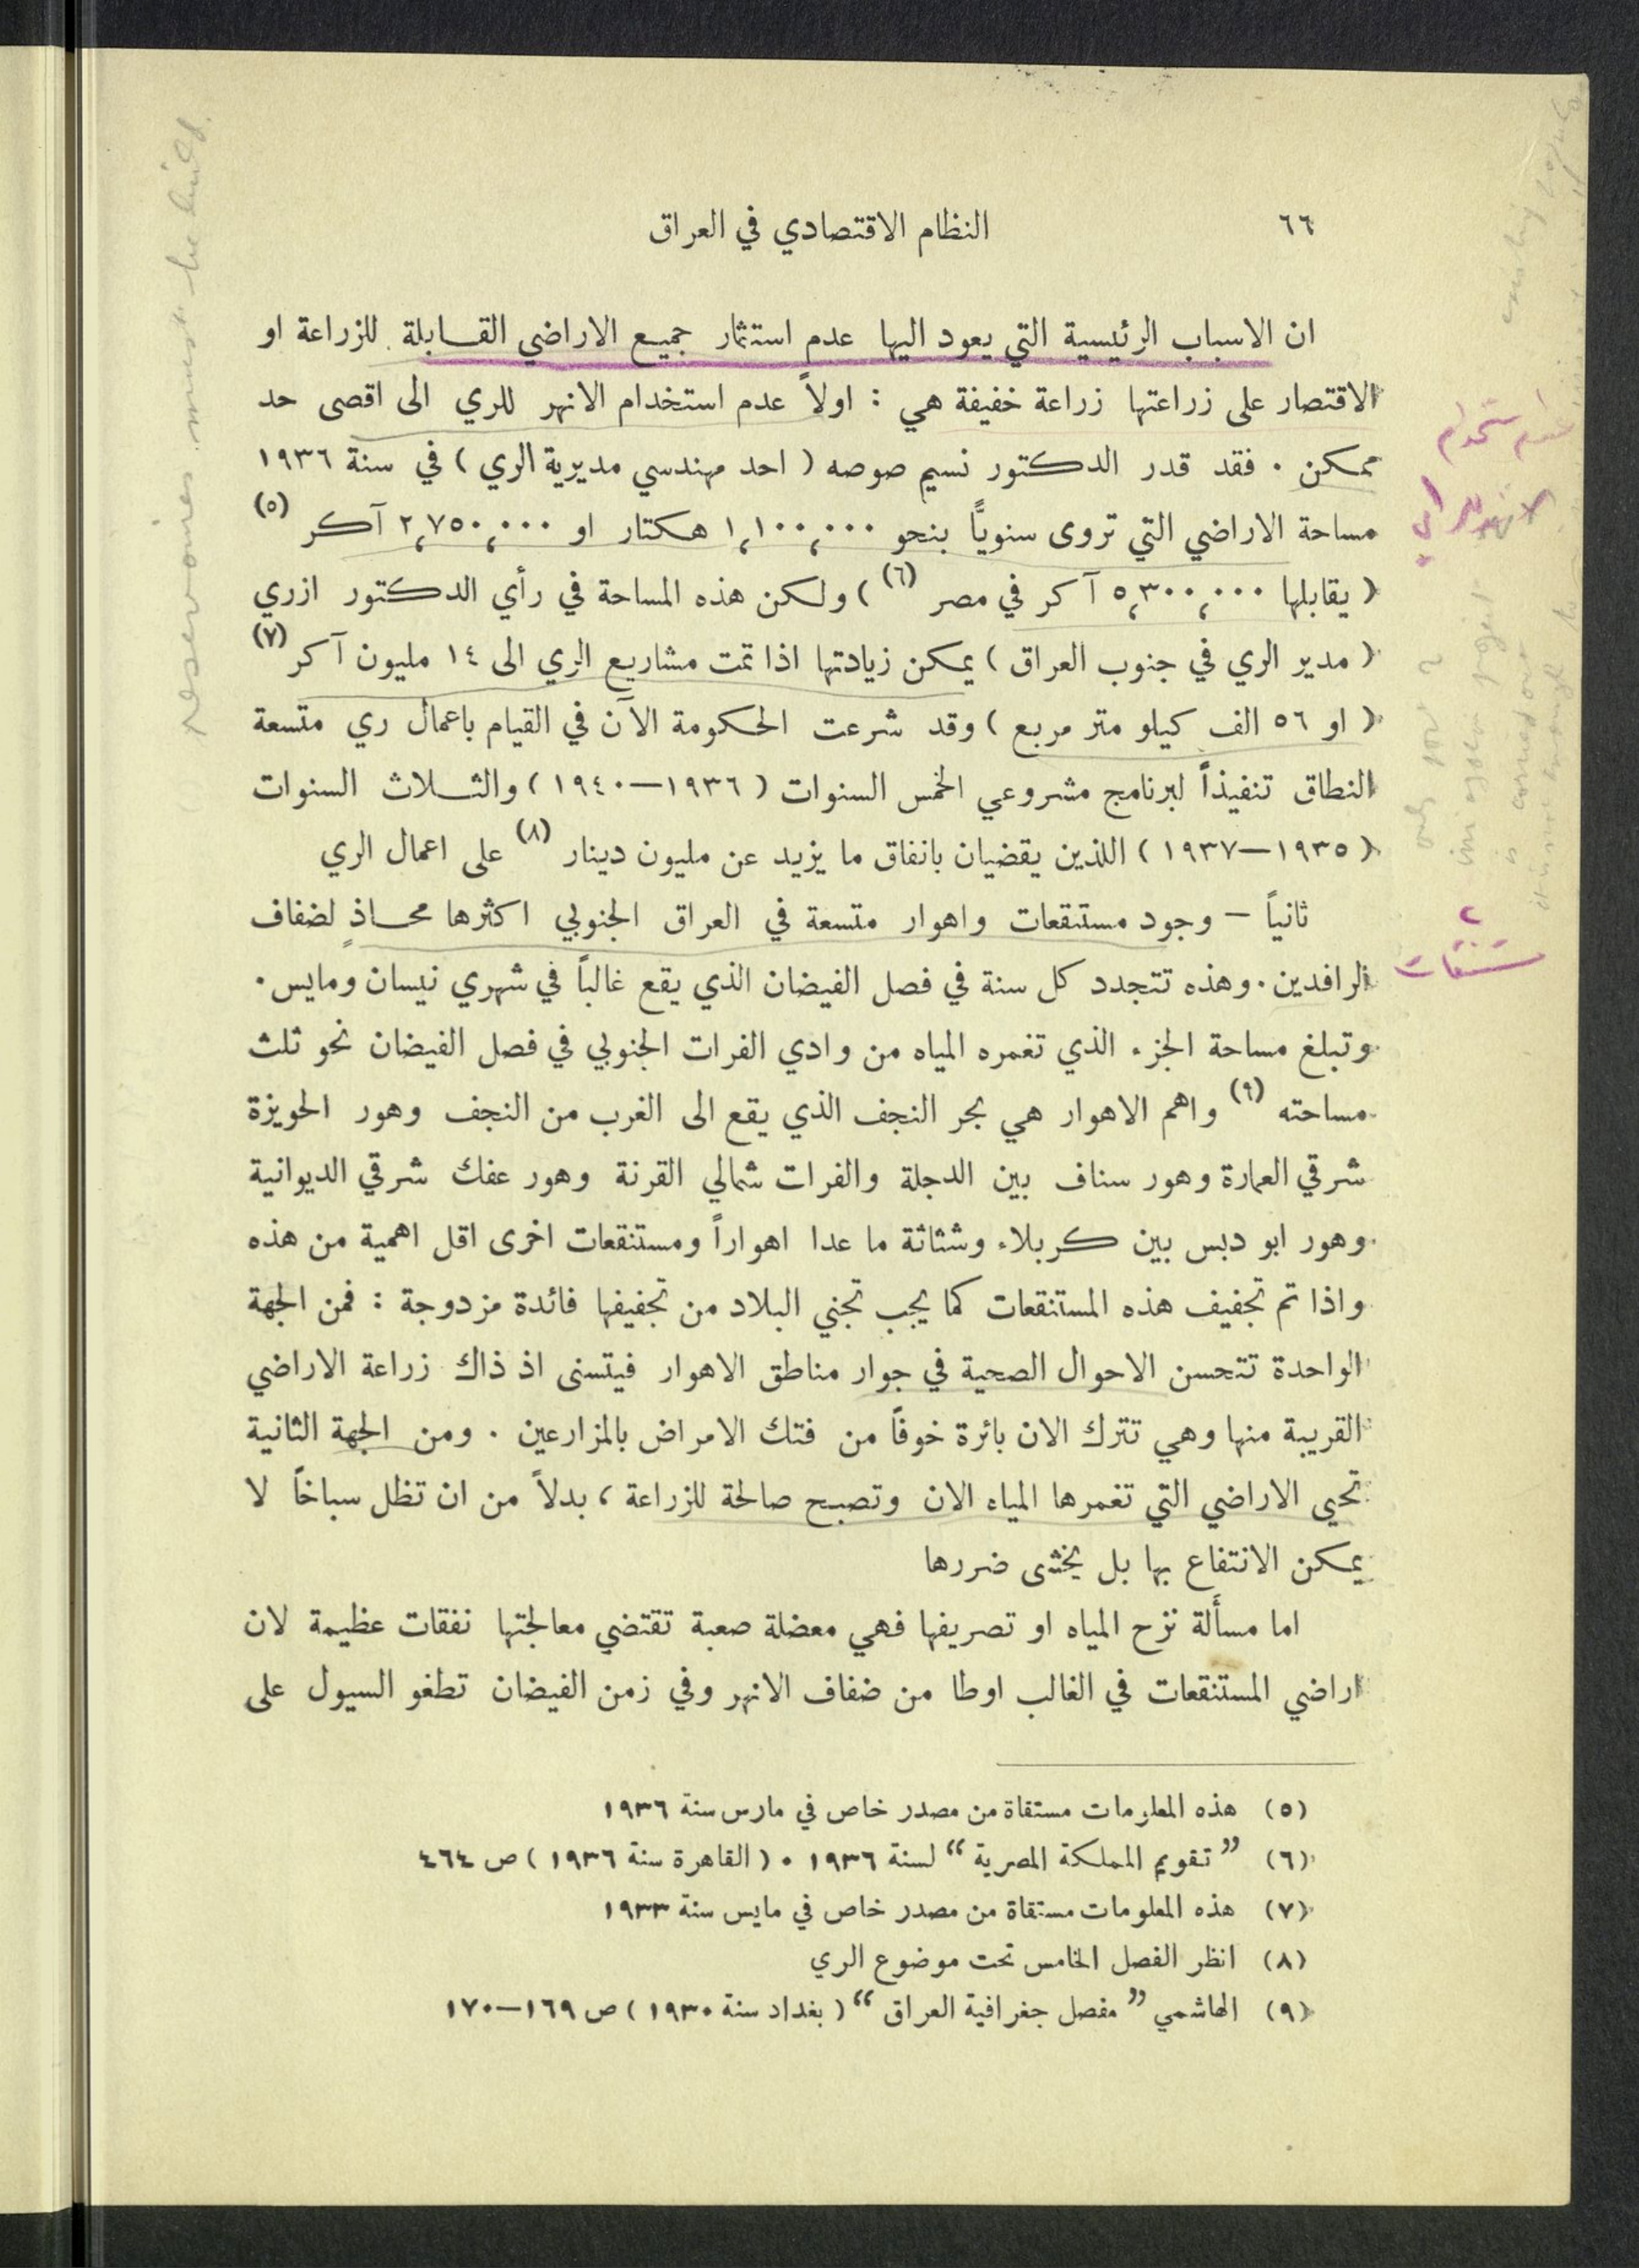 ٦٦
النظام الاقتصادي في العراق
ان الاسباب الرئيسية التي يعود اليها عدم استثمار جميع الاراضي القابلة للزراعة او
الاقتصار على زراعتها زراعة خفيفة هي : اولاً عدم استخدام الانهر للري الى اقصى حد
ممكن . فقد قدر الدكتور نسيم صوصه ( احد مهندسي مديرية الري ) في سنة ١٩٣٦
مساحة الاراضي التي تروى سنوياً بنحو ١،١٠٠،٠٠٠ هكتار او ٢،٧٥٠،٠٠٠ آكر (٥)
( يقابلها ٥،٣٠٠،٠٠٠ آكر في مصر (٦) ) ولكن هذه المساحة في رأي الدكتور ازري
( مدير الري في جنوب العراق ) يمكن زيادتها اذا تمت مشاريع الري الى ١٤ مليون آكر (٧)
( او ٥٦ الف كيلو متر مربع ) وقد شرعت الحكومة الآن في القيام باعمال ري متسعة
النطاق تنفيذاً لبرنامج مشروعي الخمس السنوات ( ١٩٣٦—١٩٤٠ ) والثلاث السنوات
( ١٩٣٥—١٩٣٧ ) اللذين يقضيان بانفاق ما يزيد عن مليون دينار (٨) على اعمال الري
ثانياً – وجود مستنقعات واهوار متسعة في العراق الجنوبي اكثرها محاذٍ لضفاف
الرافدين . وهذه تتجدد كل سنة في فصل الفيضان الذي يقع غالباً في شهري نيسان ومايس .
وتبلغ مساحة الجزء الذي تغمره المياه من وادي الفرات الجنوبي في فصل الفيضان نحو ثلث
مساحته (٩) واهم الاهوار هي بحر النجف الذي يقع الى الغرب من النجف وهور الحويزة
شرقي العمارة وهور سناف بين الدجلة والفرات شمالي القرنة وهور عفك شرقي الديوانية
وهور ابو دبس بين كربلاء وشثاثة ما عدا اهواراً ومستنقعات اخرى اقل اهمية من هذه
واذا تم تجفيف هذه المستنقعات كما يجب تجني البلاد من تجفيفها فائدة مزدوجة : فمن الجهة
الواحدة تتحسن الاحوال الصحية في جوار مناطق الاهوار فيتسنى اذ ذاك زراعة الاراضي
القريبة منها وهي تترك الان بائرة خوفاً من فتك الامراض بالمزارعين . ومن الجهة الثانية
تحيي الاراضي التي تغمرها المياه الان وتصبح صالحة للزراعة ، بدلاً من ان تظل سباخاً لا
يمكن الانتفاع بها بل يخشى ضررها
اما مسألة نزح المياه او تصريفها فهي معضلة صعبة تقتضي معالجتها نفقات عظيمة لان
اراضي المستنقعات في الغالب اوطا من ضفاف الانهر وفي زمن الفيضان تطغو السيول على
(٥) هذه المعلومات مستقاة من مصدر خاص في مارس سنة ١٩٣٦
(٦) ” تقويم المملكة المصرية “ لسنة ١٩٣٦ . ( القاهرة سنة ١٩٣٦ ) ص ٤٦٤
(٧) هذه المعلومات مستقاة من مصدر خاص في مايس سنة ١٩٣٣
(٨) انظر الفصل الخامس تحت موضوع الري
(٩) الهاشمي ” مفصل جغرافية العراق “ ( بغداد سنة ١٩٣٠ ) ص ١٦٩—١٧٠
عدم استخدام
الانهر للري
٢
مستنقعات
reservoires must be built.